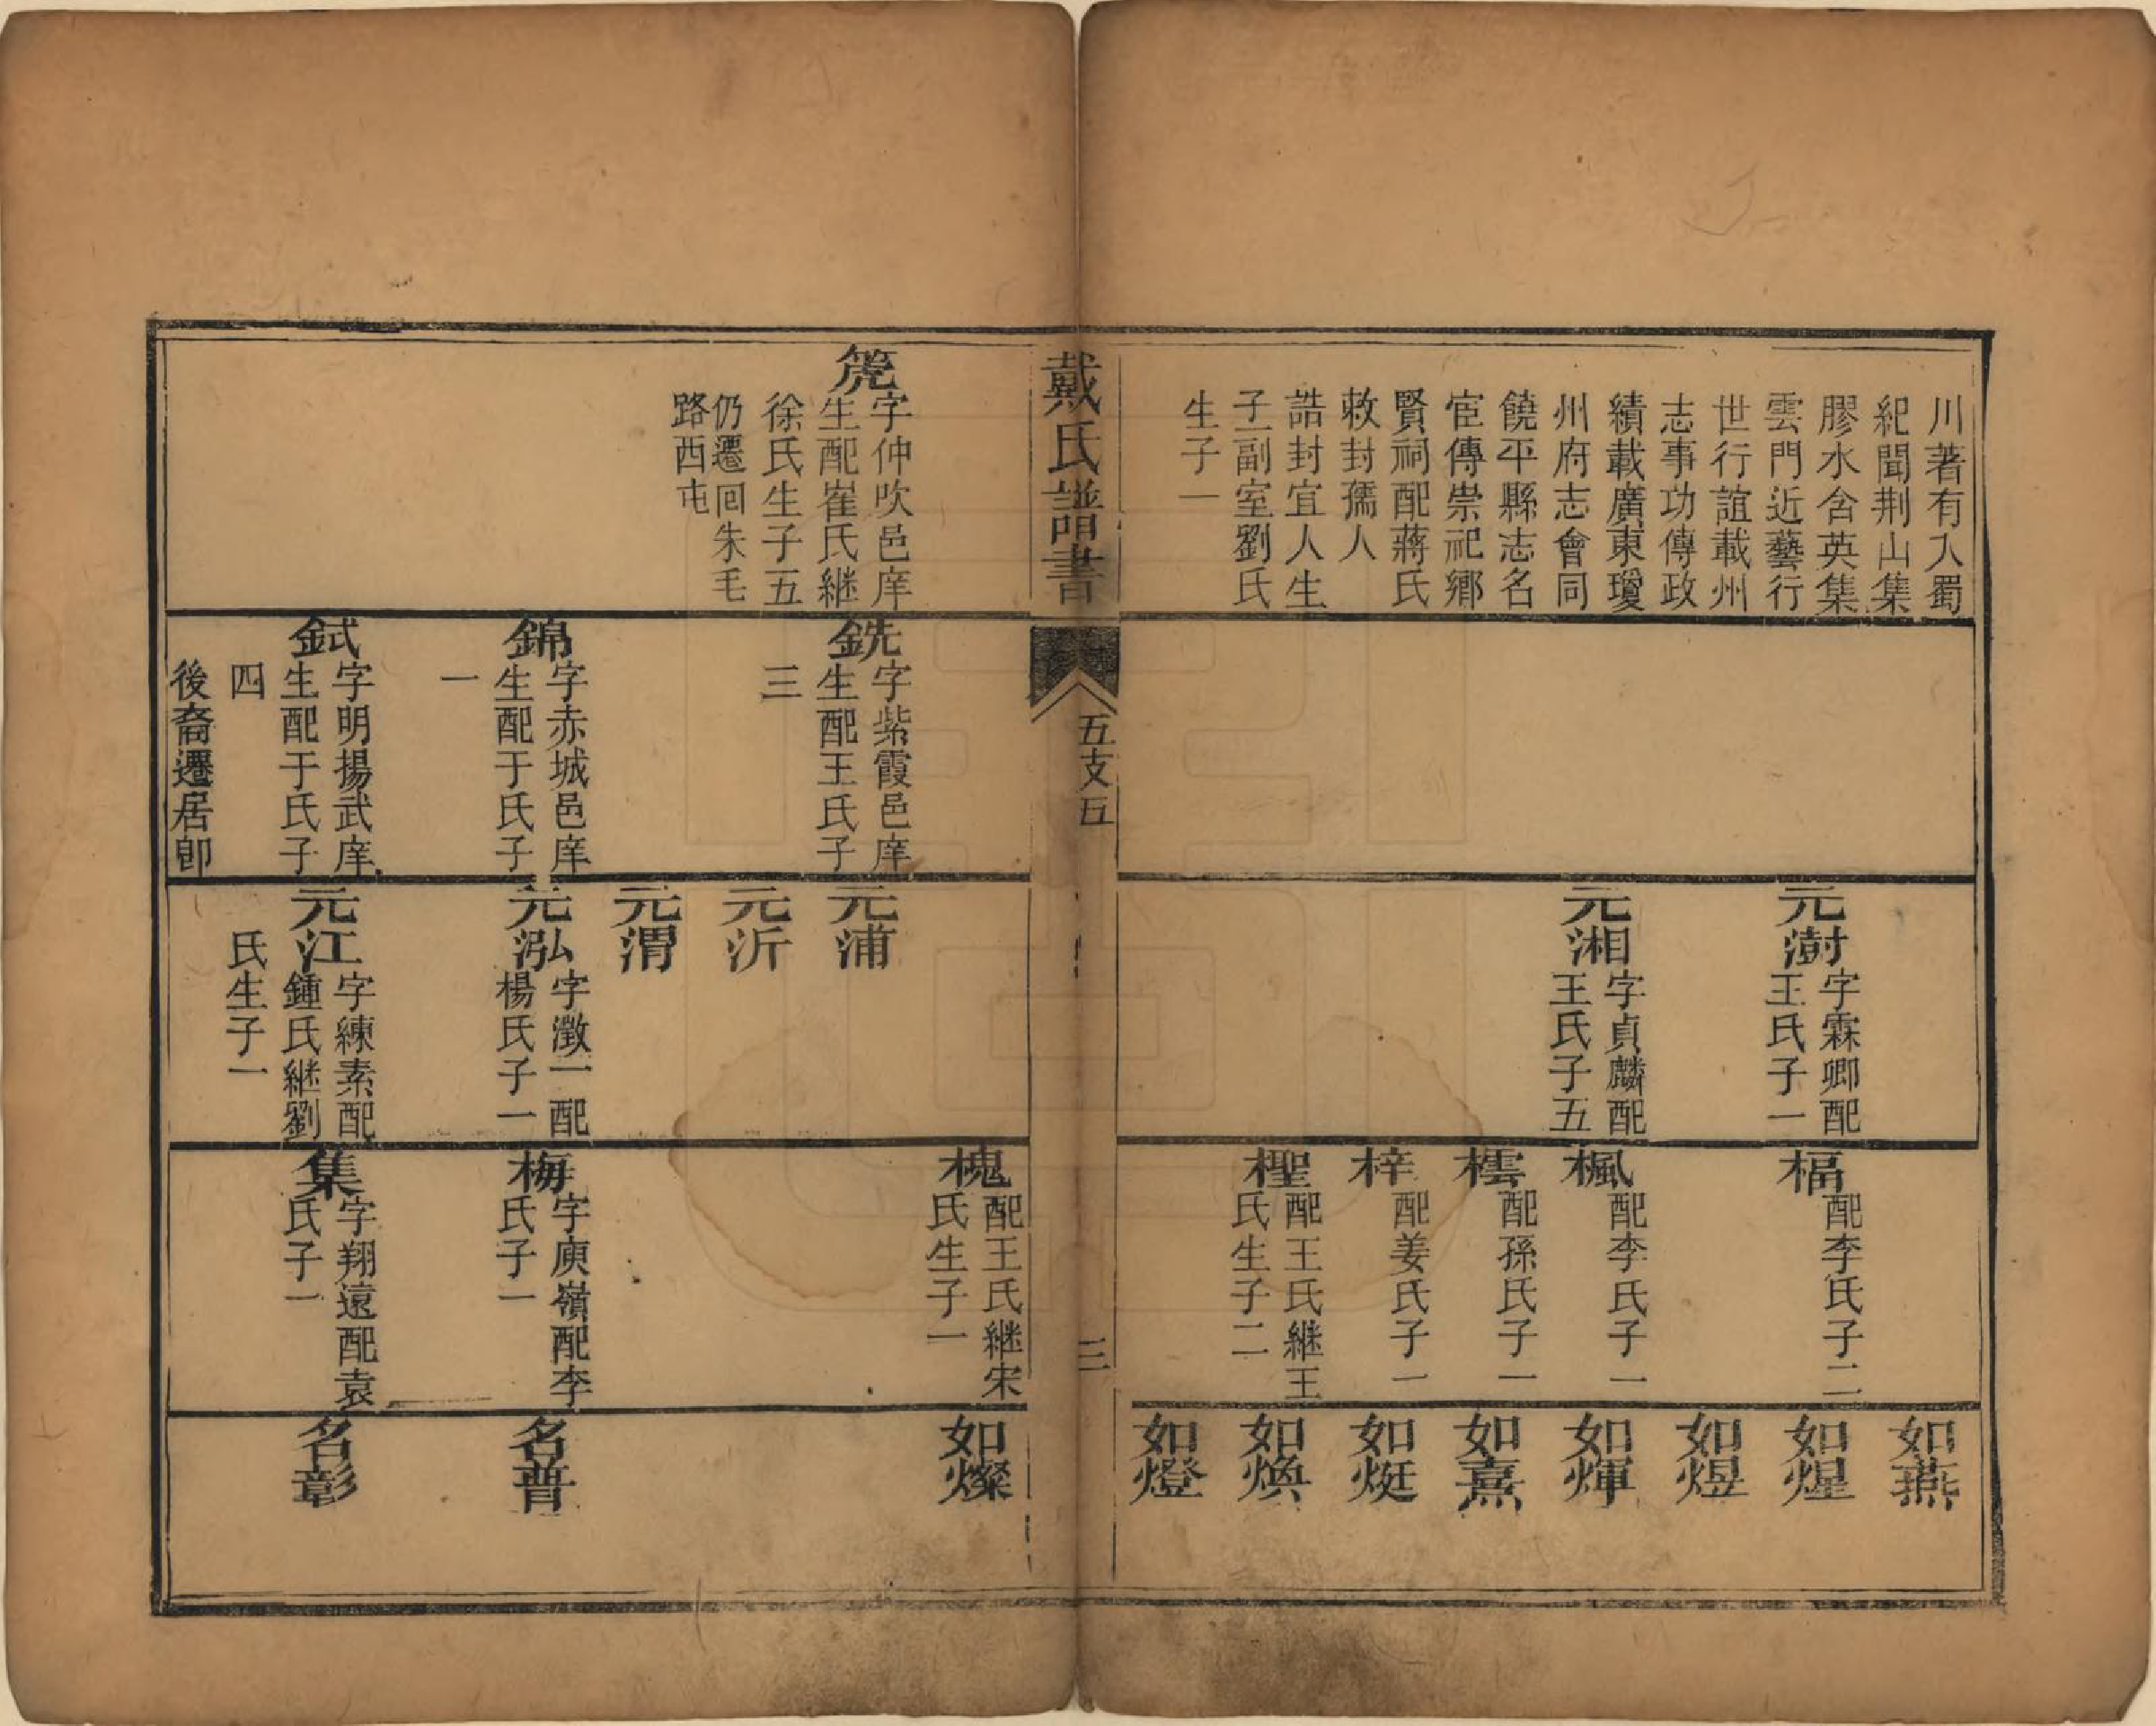 川著有入蜀
紀聞荆山集
膠水含英集
雲門近藝行
世行誼載州
志事功傳政
績載廣東瓊
州府志會同
饒平縣志名
宦傳崇祀鄉
賢祠配蔣氏
敕封孺人
誥封宜人生
子一副室劉氏
生子一
元澍
字霖卿配
王氏子一
元湘
字貞麟配
王氏子五
楅
配李氏子二
楓
配李氏子一
橒
配孫氏子一
梓
配姜氏子一
檉
配王氏繼王
氏生子二
如燕
如煋
如煜
如煇
如熹
如烶
如煥
如燈
戴氏譜書
五支五
三
箎
字仲吹邑庠
生配崔氏継
徐氏生子五
仍遷回朱毛
路西屯
銑
字紫霞邑庠
生配王氏子
三
錦
字赤城邑庠
生配于氏子
一
鉽
字明揚武庠
生配于氏子
四
後裔遷居卽
元浦
元沂
元渭
元泓
字澂一配
楊氏子一
元江
字練素配
鍾氏継劉
氏生子一
槐
配王氏継宋
氏生子一
梅
字庾嶺配李
氏子一
集
字翔遠配袁
氏子一
如燦
名普
名彰